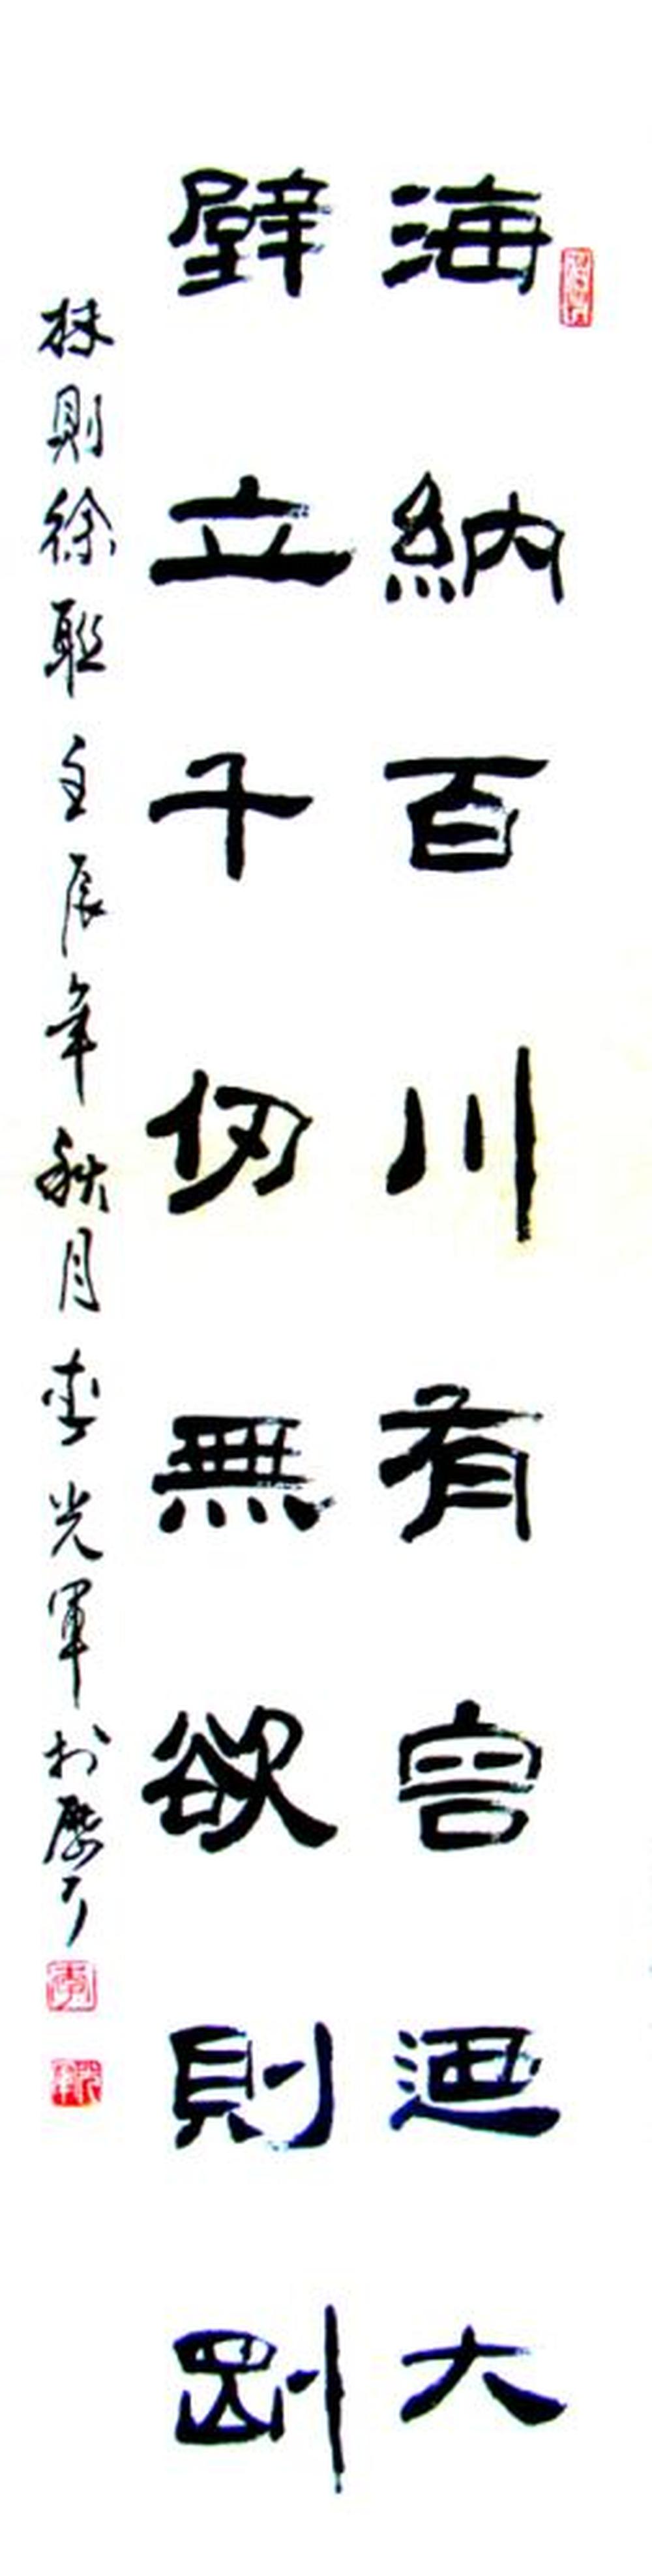 海納百川有容迺大
壁立千仞無欲則剛
林則徐聯壬辰年秋月李光軍於歷下